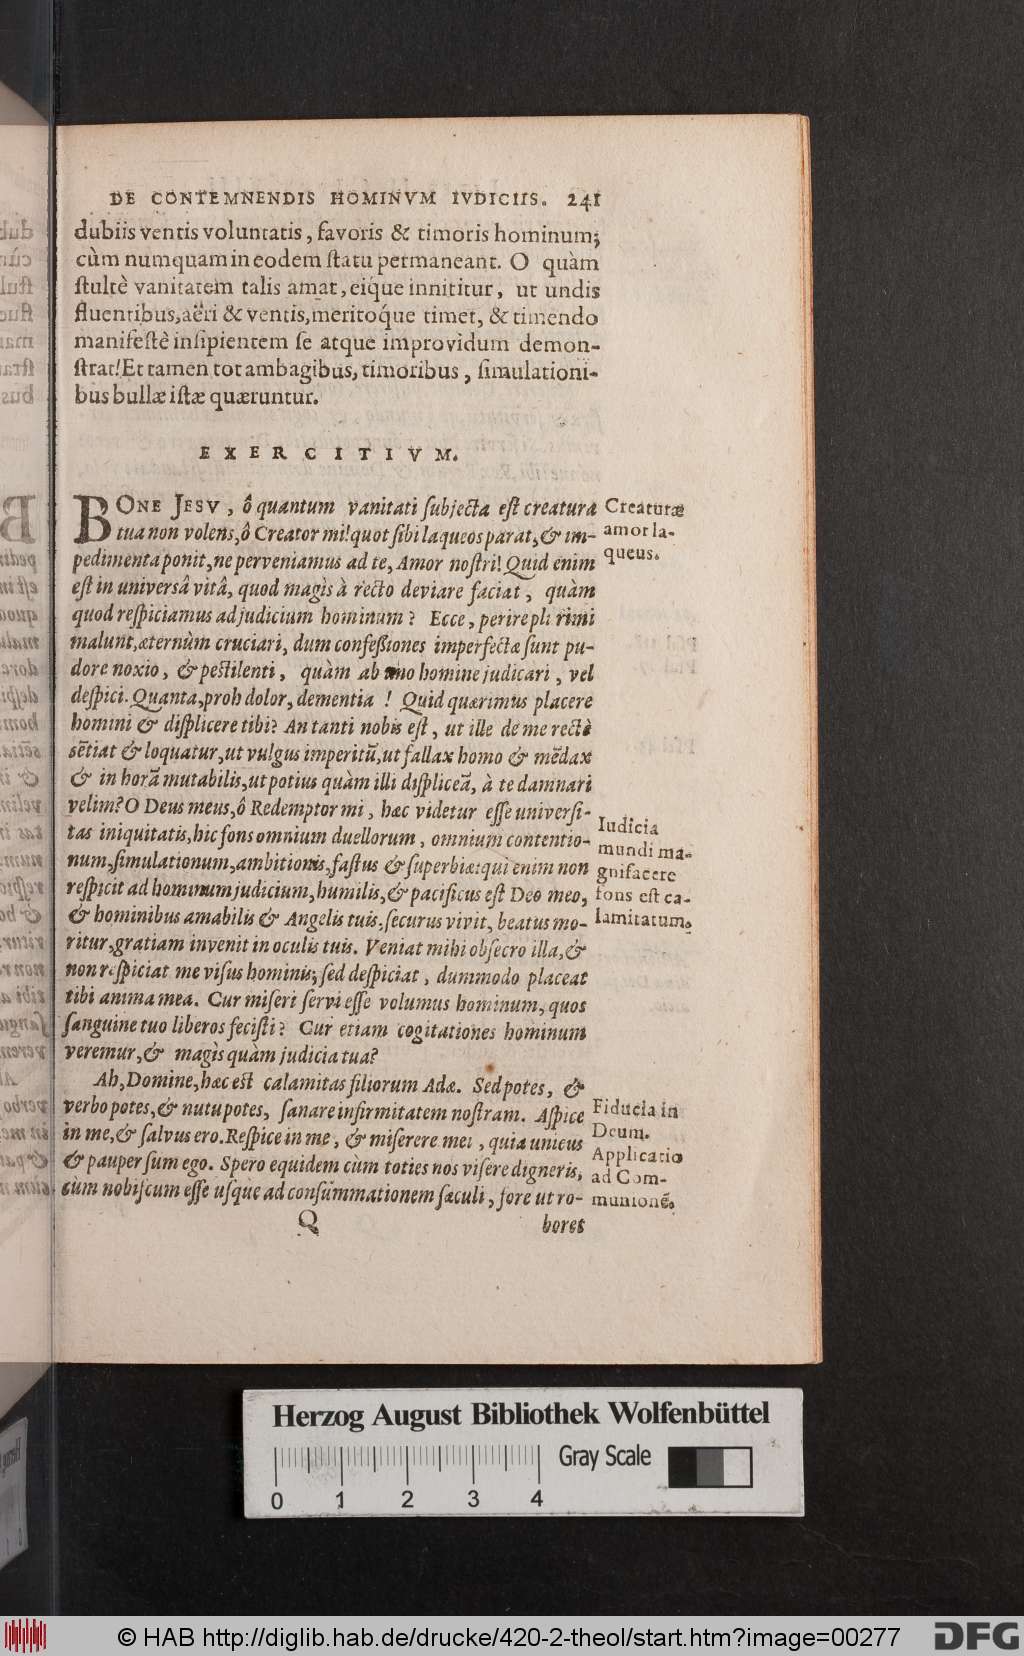 DE CONTEMNENDIS HOMINVM IVDICIIS. 241
dubiis ventis voluntatis, favoris & timoris hominum;
cùm numquam in eodem ſtatu permaneant. O quàm
ſtultè vanitatem talis amat, eique innititur, ut undis
fluentibus, aëri & ventis, meritoq́ue timet, & timendo
manifeſtè inſipientem ſe atque improvidum demon-
ſtrat! Et tamen tot ambagibus, timoribus, ſimulationi-
bus bullæ iſtæ quæruntur.
EXERCITIVM.
BONE JESV, ô quantum vanitati ſubjecta eſt creatura
tua non volens, ô Creator mi! quot ſibi laqueos parat, & im-
pedimenta ponit, ne perveniamus ad te, Amor noſtri! Quid enim
eſt in universâ vitâ, quod magìs à recto deviare faciat, quàm
quod reſpiciamus ad judicium hominum? Ecce, perire plurimi
malunt, æternùm cruciari, dum confeſſiones imperfectæ ſunt pu-
dore noxio, & peſtilenti, quàm ab uno homine judicari, vel
deſpici. Quanta, proh dolor, dementia! Quid quærimus placere
homini & diſplicere tibi? An tanti nobis eſt, ut ille de me rectè
sētiat & loquatur, ut vulgus imperitū, ut fallax homo & mēdax
& in horā mutabilis, ut potius quàm illi diſpliceā, à te damnari
velim? O Deus meus, ô Redemptor mi, hæc videtur eſſe univerſi-
tas iniquitatis, hic fons omnium duellorum, omnium contentio-
num, ſimulationum, ambitionis, faſtus & ſuperbiæ: qui enim non
reſpicit ad hominum judicium, humilis, & pacificus eſt Deo meo,
& hominibus amabilis & Angelis tuis, ſecurus vivit, beatus mo-
ritur, gratiam invenit in oculis tuis. Veniat mihi obſecro illa, &
non reſpiciat me viſus hominis; ſed deſpiciat, dummodo placeat
tibi anima mea. Cur miſeri ſervi eſſe volumus hominum, quos
ſanguine tuo liberos feciſti? Cur etiam cogitationes hominum
veremur, & magìs quàm judicia tua?
Ah, Domine, hæc eſt calamitas filiorum Adæ. Sed potes, &
verbo potes, & nutu potes, ſanare infirmitatem noſtram. Aſpice
in me, & ſalvus ero. Reſpice in me, & miſerere mei, quia unicus
& pauper ſum ego. Spero equidem cùm toties nos viſere digneris,
cùm nobiſcum eſſe uſque ad conſummationem ſæculi, fore ut ro-
Q
bores
Creaturæ
amor la-
queus.
Iudicia
mundi ma-
gnifacere
fons eſt ca-
lamitatum.
Fiducia in
Deum.
Applicatio
ad Com-
munionē.
Herzog August Bibliothek Wolfenbüttel
Gray Scale
0 1 2 3 4
© HAB http://diglib.hab.de/drucke/420-2-theol/start.htm?image=00277
DFG